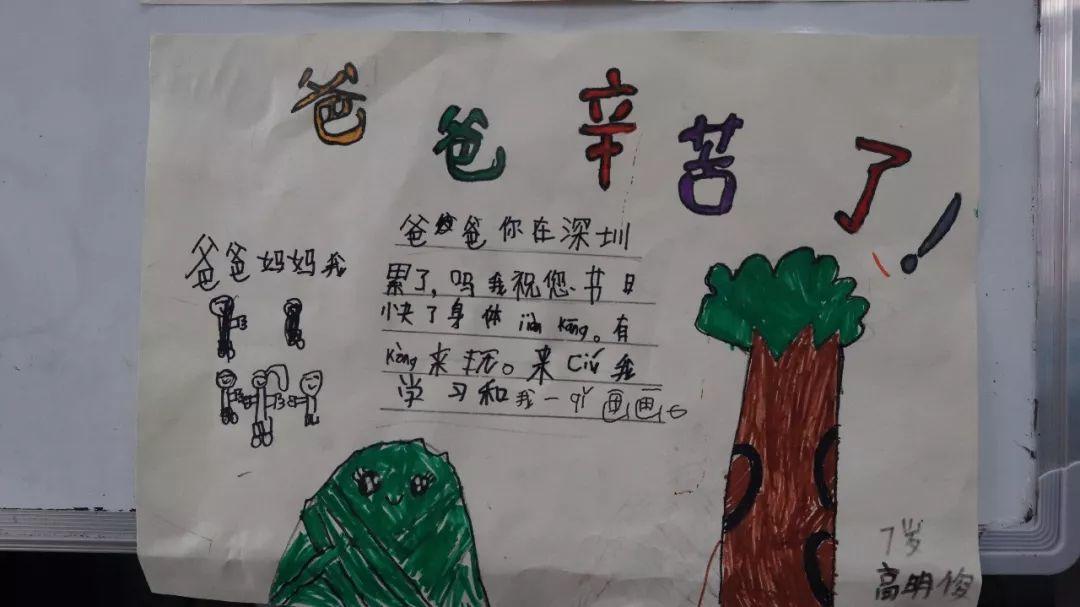 爸爸辛苦了!
爸爸妈妈我
爸爸你在深圳
累了,吗我祝您书日
快了身体jiàn kāng。有
kòng来玩。来
我
学习和我一qǐ画画。
7岁
高明俊